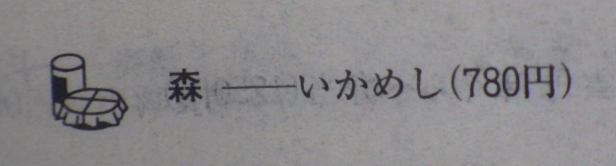 森――いかめし(780円)